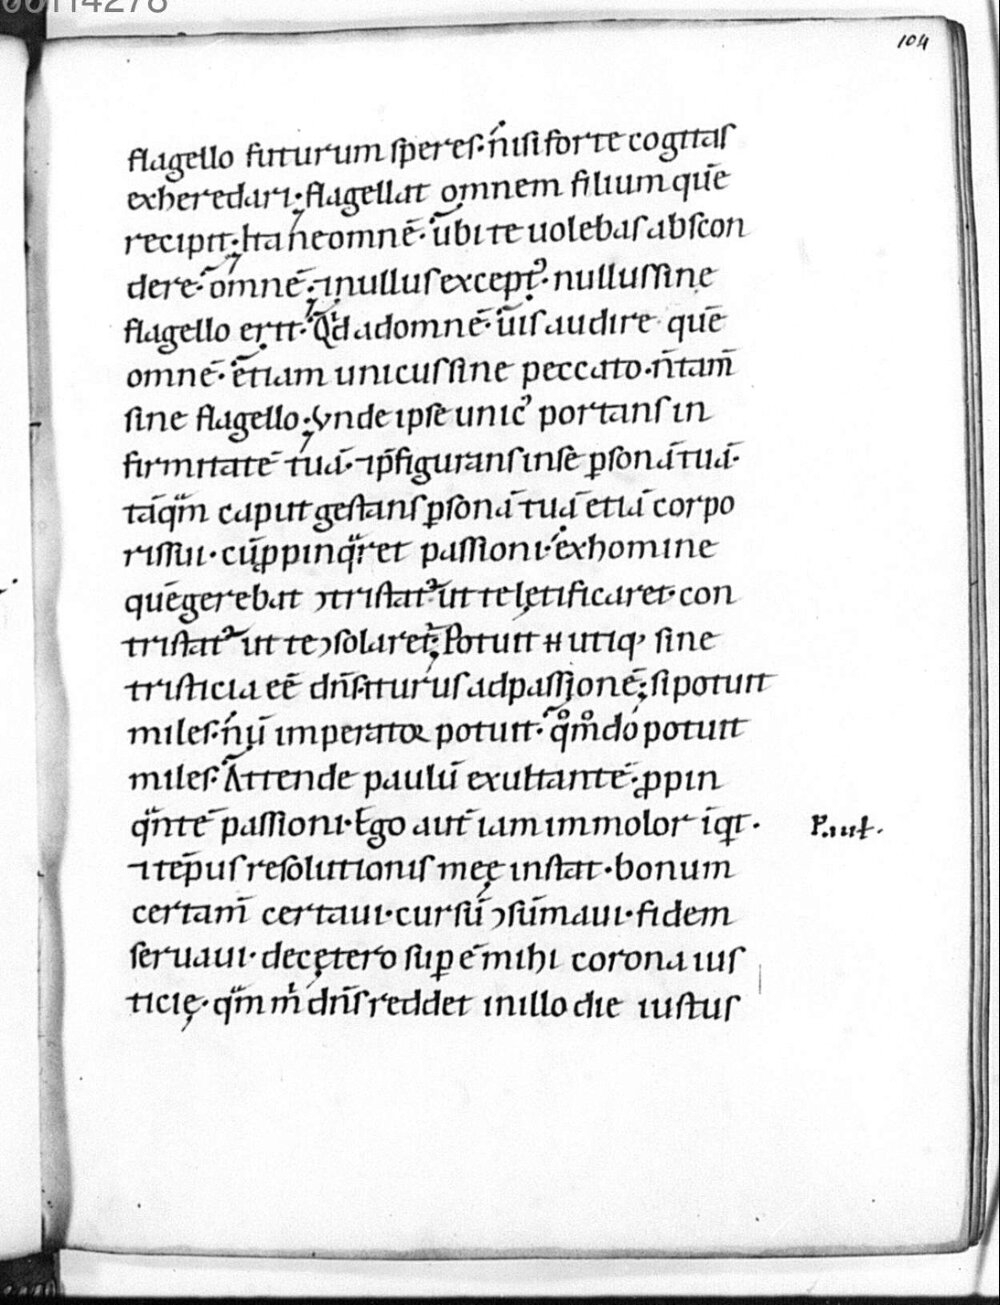 00114278
104
flagello futurum ſperes· niſi forte cogitaſ
exheredari; flagellat omnem filium quē
recipit; Ita ne omnē· ubi te uolebaſ abſcon
dere· omnē; ⁊ nulluſ except᾿· nulluſ ſine
flagello erit· Qd ad omnē· uiſ audire quē
omnē· etiam unicuſ ſine peccato· ñ tam̄
ſine flagello; Vnde ipſe unic᾿ portanſ in
firmitatē tuā· ⁊ p̄figuranſ inſe pſonā tuā·
tāqm caput geſtanſ pſonā tuā etiā corpo
riſ ſui· cū ppinqret paſſioni· ex homine
quē gerebat ↄtriſtat᾿ ut te lętificaret· con
triſtat᾿ ut te ↄſolaret; Potuit ñ utiq; ſine
triſticia eē dn̄ſ· ituruſ ad paſſionē; ſi potuit
mileſ· n̄ū imperator potuit· qmdo potuit
mileſ· Attende paulū exultantē· ppin
qntē paſſioni· Ego aut̄ iam immolor īqt·
Paul·
⁊ tēpuſ reſolutioniſ meę inſtat· bonum
certam̄ certaui· curſū ↄſūmaui· fidem
ſeruaui· decętero ſup ē mihi corona iuſ
ticię· qm m dn̄ſ reddet in illo die iuſtuſ